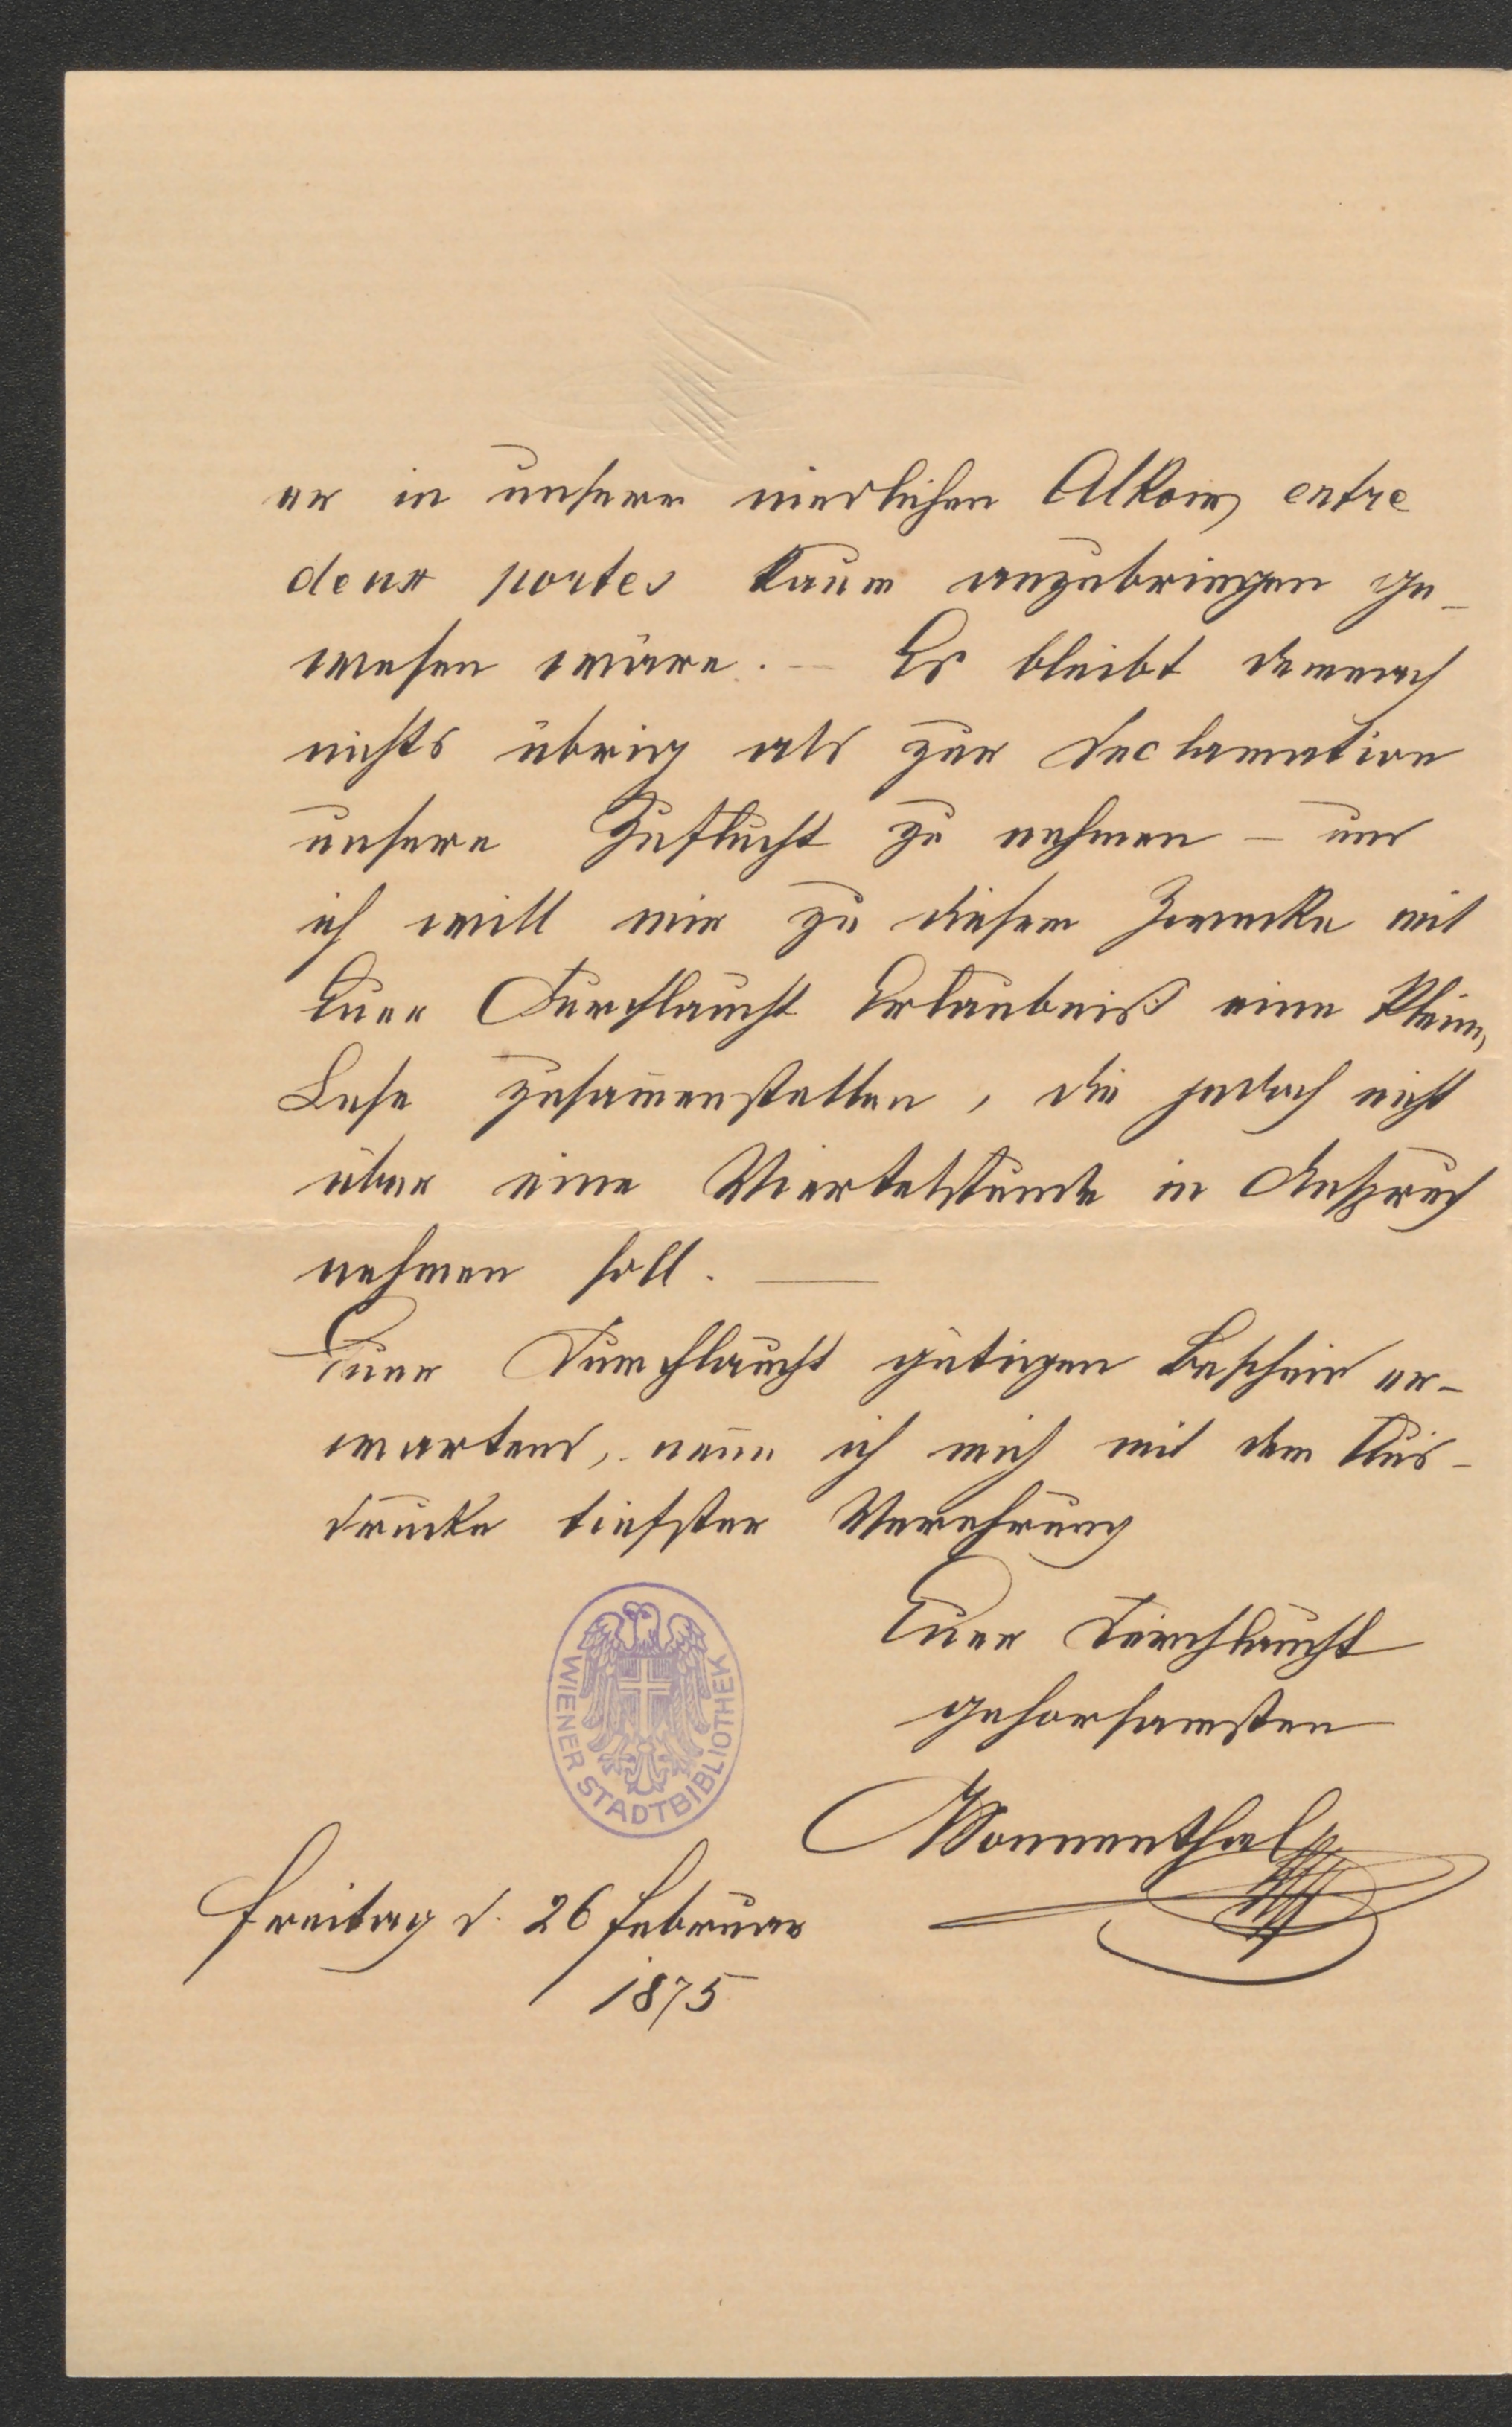 er in unserm niedlichen Alkoven entre
deux portes kaum anzubringen ge-
wesen wäre. — Es bleibt demnach
nichts übrig als zur Declamation
unsere Zuflucht zu nehmen – und
ich will mir zu diesem Zwecke mit
Euer Durchlaucht Erlaubniß eine kleine
Lese zusam̄enstellen, die jedoch nicht
über eine Viertelstunde in Anspruch
nehmen soll. —
Euer Durchlaucht gütigen Bescheid er-
wartend, nen̄e ich mich mit dem Aus-
drucke tiefster Verehrung
Euer Durchlaucht
gehorsamsten
Sonnenthal
Freitag d. 26 Februar
1875
WIENER STADTBIBLIOTHEK